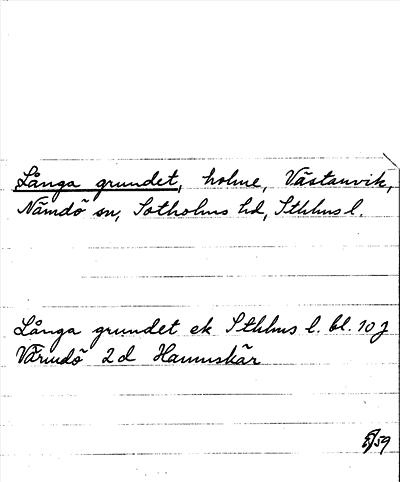 Långa grundet, holme, Västanvik,
Nämdö sn, Sotholms hd, Sthlms l.
Långa grundet ek Sthlms l. bl. 10 J
Värmdö 2d Hamnskär
59